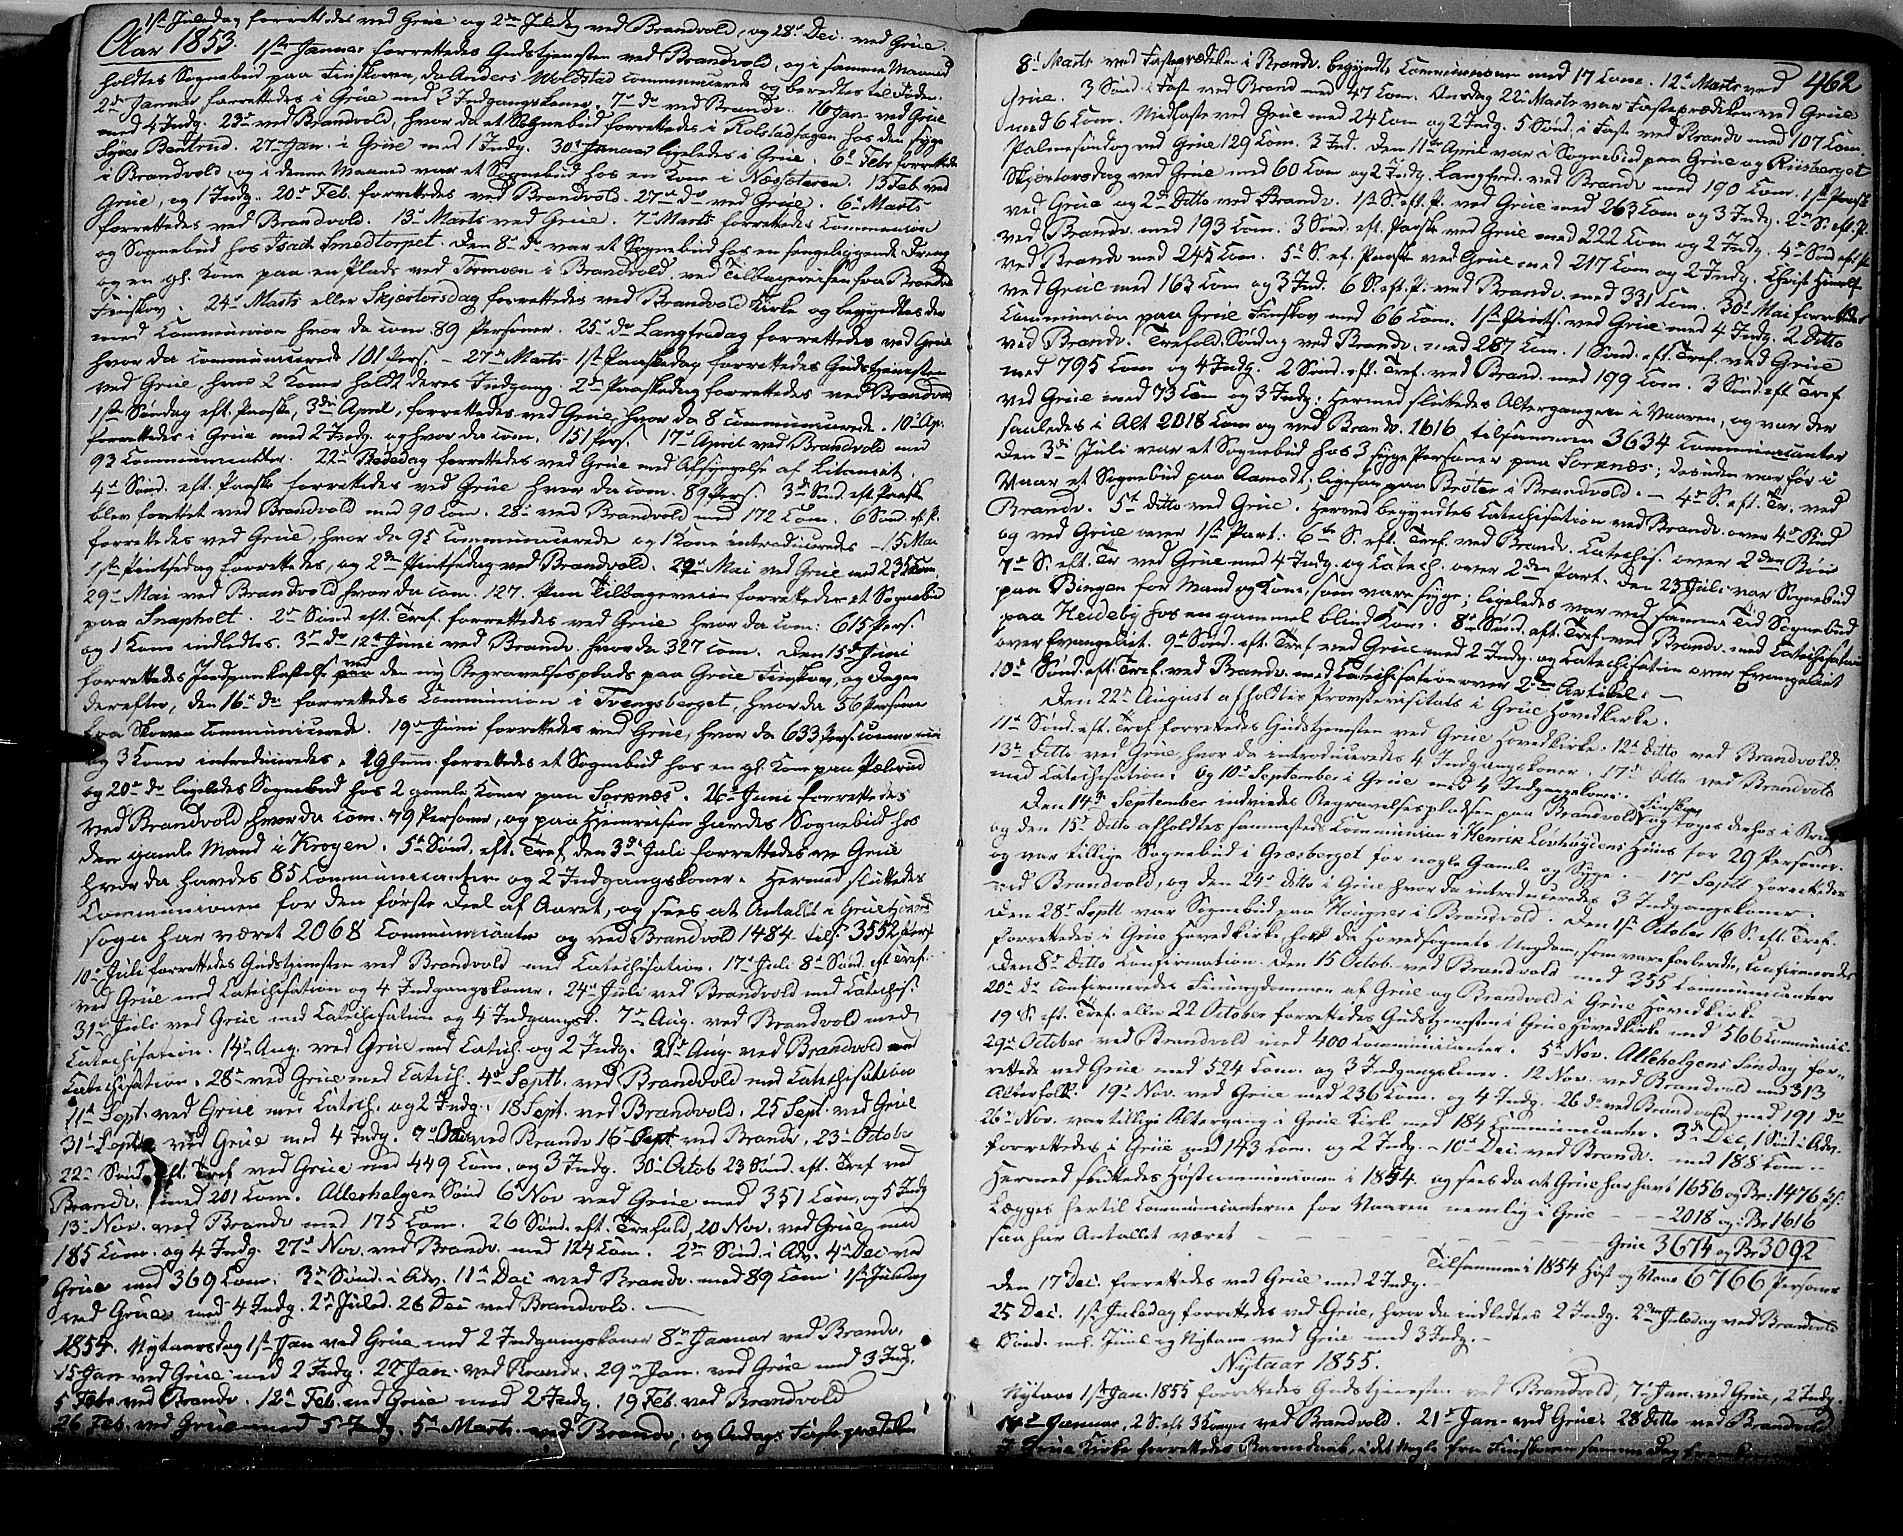 1ste Juledag forrettedes ved Grue og 2den Juledag ved Brandvold, og 28de Dec. ved Grue.
Aar 1853. 1ste Januar forrettedes Gudstjenesten ved Brandvold, og i samme Maaned
holdtes Sognebud paa Finskoven, da Anders Woldstad communicerede og beredtes til Døden.
2den Januar forrettedes i Grue med 3 Indgangskoner. 7de do ved Brandv. 16 Jan. ved Grue
med 4 Indg. 23de ved Brandvold, hvor da et Sognebud forrettedes i Rolstadhagen hos den syge
Syver Bentrud. 27de Jan. i Grue med 1 Indg. 30te Januar ligeledes i Grue. 6te Febr. forrettedes
i Brandvold, og i denne Maaned var et Sognebud hos en Kone i Næsteteren. 13 Feb. ved
Grue, og 1 Indg. 20de Feb. forrettedes ved Brandvold. 27de do ved Grue. 6te Marts
forrettedes ved Brandvold. 13de Marts ved Grue. 7de Marts forrettedes Communion
og Sognebud hos Isach Smedtorpet. Den 8de do var et Sognebud hos en sengeliggende Dreng
og en gl. Kone paa en Plads ved Tørmoen i Brandvold, ved Tilbagereisen fra Brandv.
Finskov. 24de Marts eller Skjærtorsdag forrettedes ved Brandvold Kirke og begyndtes der
med Communion hvor da com. 89 Personer. 25de do Langfredag forrettedes ved Grue
hvor da communicerede 101 Pers. – 27de Marts 1ste Paaskedag forrettedes Gudstjenesten
ved Grue, hvor 2 Koner holdt deres Indgang. 2den Paaskedag forrettedes ved Brandvold
1ste Søndag eft. Paaske, 3die April, forrettedes ved Grue hvor da 8 communicerede. 10de Ap.
forrettedes i Grue med 2 Indg. og hvor da com. 151 Pers. 17de April ved Brandvold med
93 Communicanter. 22de Bededag forrettedes ved Grue med Afsyngelse af Litaniet.
4de Sønd. eft. Paaske forrettedes ved Grue hvor da com. 89 Pers. 3die Sønd. eft. Paaske
blev forrettet ved Brandvold med 90 Com. 28de ved Brandvold med 172 Com. 6 Sønd. ef. P.
forrettedes ved Grue, hvor da 95 communicerede og 1 Kone introduceredes – 15 Mai
1ste Pintsedag forrettedes, og 2den Pintsedag ved Brandvold. 22de Mai ved Grue med 235 Com.
29de Mai ved Brandvold hvor da com. 127. Paa Tilbageveien forrettedes et Sognebud
paa Snapholt. 2den Sønd. eft. Tref. forrettedes ved Grue hvor da com: 615 Pers.
og 1 Kone indledtes. 3de do 12te Juni ved Brandv. hvor da 327 Com. Den 15de Juni
forrettedes Jordpaakastelse ved den ny Begravelsesplads paa Grue Finskov, og Dagen
derefter, den 16de do forrettedes Communion i Tvengsberget, hvor da 56 Personer
fra Skoven communicerede. 19de Juni forrettedes ved Grue, hvor da 633 Pers. communic.
og 3 Koner introduceredes. 29 Juni forrettedes et Sognebud hos en gl. Kone paa Pælerud
og 20de do ligeledes Sognebud hos 2 gamle Koner paa Sorknæs. 26de Juni forrettedes
ved Brandvold hvor da com. 79 Personer, og paa Hjemreisen havdes Sognebud hos
den gamle Mand i Krogen. 5te Sønd. eft. Tref. den 3die Juli forrettedes ved Grue
hvor da havdes 85 Communicanter og 2 Indgangskoner. Hermed sluttedes
Communionen for den første Deel af Aaret, og sees at Antallet i Grue Hoved-
sogn har været 2068 Communicanter og ved Brandvold 1484 tils. 3552 Pers.
10de Juli forrettedes Gudstjenesten ved Brandvold med Catechisation. 17de Juli 8de Sønd. eft. Tref.
ved Grue med Catechisation og 4 Indgangskoner. 24de Juli ved Brandvold med Catechis.
31de Juli ved Grue med Catechisation og 4 Indgangsk. 7de Aug. ved Brandvold med
Catechisation. 14de Aug. ved Grue med Catech. og 2 Indg. 21de Aug. ved Brandvold med
Catechisation. 28de ved Grue med Catech. 4de Septb. ved Brandvold med Catechisation
11te Sept. ved Grue med Catech. og 2 Indg. 18 Sept. ved Brandvold. 25 Sept. ved Grue
ved Grue med 4 Indg. 9de Octo ved Brandv. 16de ved Brandv. 23de October
22de Sønd. eft. Tref. ved Grue med 449 Com. og 3 Indg. 30te Octob. 23 Sønd. eft. Tref. ved
Brandv. med 201 Com. Allerhelgen Sønd. 6te Nov. ved Grue med 351 Com. og 5 Indg.
13de Nov. ved Brandv. med 175 Com. 26 Sønd. eft. Trefold. 20 Nov. ved Grue, med
185 Com. og 4 Indg. 27de Nov. ved Brandv. med 124 Com. 2den Sønd. i Adv. 4de Dec. ved
Grue med 369 Com. 3die Sønd. i Adv. 11te Dec. ved Brandv. med 89 Com. 1ste Juledag
ved Grue med 4 Indg. 2den Juled. 26 Dec. ved Brandvold.
1854. Nytaarsdag 1ste Jan. ved Grue med 2 Indgangskoner 8de Januar ved Brandv.
15 Jan. ved Grue med 2 Indg. 22de Jan. ved Brandv. 29de Jan. ved Grue med 3 Indg.
5 Feb. ved Brandv. 12te Feb. ved Grue med 2 Indg. 19 Feb. ved Brandvold
26 Feb. ved Grue med 5 Indg. 5te Marts ved Brandv. og Onsdags Fasteprædiken
462
8de Marts ved Fasteprædiken i Brandv. begyndte Communionen med 17 Com. 12te Marts ved
Grue. 3 Sønd. i Fast. ved Brandv. med 47 Com. Onsdag 22de Marts var Fasteprædiken ved Grue
med 6 Com. Midfaste ved Grue med 24 Com. og 2 Indg. 5 Sønd. i Fast. ved Brandv. med 107 Com.
Palmesøndag ved Grue 129 Com. 3 Ind. Den 11te April var Sognebud paa Grue og Riisberget
Skjærtorsdag ved Grue med 60 Com. og 2 Indg. Langfred. ved Brandv. med 190 Com. 1ste Paask.
ved Grue og 2den Ditto ved Brandv. 1ste S. eft. P. ved Grue med 263 Com. og 3 Indg. 2den S. eft. P.
ved Brandv. med 193 Com. 3 Sønd. eft. Paask. ved Grue med 222 Com. og 2 Indg. 4de Sønd. eft. P.
ved Brandv. med 245 Com. 5te S. ef. Paaske ved Grue med 217 Com. og 2 Indg. Christ. Himelf.
ved Grue med 163 Com. og 3 Ind. 6 S. eft. P. ved Brandv. med 331 Com. 30te Mai forrettedes
Communion paa Grue Finskov med 66 Com. 1ste Pints. ved Grue med 4 Indg. 2 Ditto
ved Brandv. Trefold. Søndag ved Brandv. med 287 Com. 1 Sønd. eft. Tref. ved Grue
med 795 Com. og 4 Indg. 2 Sønd. eft. Tref. ved Brand. med 199 Com. 3 Sønd. eft. Tref.
ved Grue med 73 Com. og 3 Indg. Hermed sluttedes Altergangen i Vaaren, og var der
saaledes i Alt 2018 Com. og ved Brandv. 1616 tilsammen 3634 Communicanter
Den 3die Juli var et Sognebud hos 3 syge Personer paa Sorknæs; desuden var før i
Vaar et Sognebud paa Aamodt; ligesaa paa Brøter i Brandvold. – 4de S. eft. Tr. ved
Brandv. 5te Ditto ved Grue. Herved begyndtes Catechisation ved Brandv. over 4de Bud
og ved Grue over 1ste Part. 6te S. eft. Tref. ved Brandv. Catechis. over 2den Bøn
7de S. eft. Tr. ved Grue med 4 Indg. og Catech. over 2den Part. Den 23 Juli var Sognebud
paa Bingen for Mand og Kone, som vare syge; ligeledes var ved samme Tid Sognebud
paa Heideby hos en gammel blind Kone. 8de Sønd. eft. Tref. ved Brandv. med Catechisation
over Evangeliet. 9de Sønd. eft. Tref. ved Grue med 2 Indg. og Catechisation over Evangeliet
10de Sønd. eft. Tref. ved Brandv. med Catechisation over 2den Artikel. –
Den 22de August afholdtes Provstevisitats i Grue Hovedkirke.
11te Sønd. eft. Tref. forrettedes Gudstjenesten ved Grue Hovedkirke. 12te Ditto ved Brandvold.
13de Ditto ved Grue hvor da introduceredes 4 Indgangskoner. 17de Ditto ved Brandvold
med Catechisation. Og 10de September i Grue med 4 Indgangskoner.
Den 14de September indviedes Begravelsespladsen paa Brandvold Finskov, og toges derhos i Brug
og den 15de Ditto afholdtes sammesteds Communion i Henrik Løvhøugens Huus for 29 Personer.
og var tillige Sognebud i Græsberget for nogle Gamle og Syge. – 17de Septb. forrettedes
ved Brandvold, og den 24de Ditto i Grue hvor da introduceredes 3 Indgangskoner.
Den 28de Septb. var Sognebud paa Hougner i Brandvold. Den 1ste October 16 S. eft. Tref.
forrettedes i Grue Hovedkirke hvor da Hovedsognets Ungdom, som vare forberedte, confirmeredes
Den 8de Ditto Confirmation. Den 15 Octob. ved Brandvold med 355 Communicanter
20de do confirmeredes Finungdommen af Grue og Brandvold i Grue Hovedkirke
19 S. eft. Tref. eller 22 October forrettedes Gudstjenesten i Grue Hovedkirke med 566 Communic.
29de October ved Brandvold med 400 Communicanter. 5te Nov. Allehelgens Søndag for-
rettede ved Grue med 524 Com. og 3 Indgangskoner. 12 Nov. ved Brandvold med 313
Alterfolk. 19de Nov. ved Grue med 236 Com. og 4 Indg. 26 do ved Brandvold med 191 do
26de Nov. var tillige Altergang i Grue Kirke med 184 Communicanter. 3die Dec. 1 Sønd. i Adv.
forrettedes i Grue med 143 Com. og 2 Indg. – 10de Dec. ved Brandv. med 188 Com. –
Hermed sluttedes Høstcommunionen i 1854. og sees da at Grue har havt 1656 og Br. 1476
Lægges hertil Communicanterne for Vaaren nemlig i Grue – – – 2018 og i Br. 1616
saa har Antallet været – – – – – – Grue 3674 og Br. 3092
Tilsammen i 1854 Høst og Vaar 6766 Personer
Den 17de Dec. forrettedes ved Grue med 2 Indg. –
25 Dec. 1ste Juledag forrettedes ved Grue, hvor da indledtes 2 Indg. 2den Juledag ved Brandvold
Sønd. mel. Juul og Nytaar ved Grue med 3 Indg. –
Nytaar 1855.
Nytaar 1ste Jan. 1855 forrettedes Gudstjenesten ved Brandvold, 7de Jan. ved Grue, 2 Indg.
14de Januar, 2 S. eft. 3 Konger ved Brandvold. 21de Jan. ved Grue. 28 Ditto ved Brandvold
I Grue Kirke forrettedes Barnedaab, i det Nogle fra Finskoven samme Dag